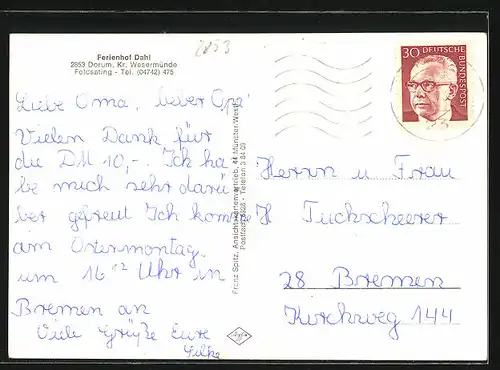 Ferienhof Dahl
2853 Dorum, Kr. Wesermünde
Feldsating - Tel. (04742) 475
2853
30 DEUTSCHE
BUNDESPOST
Liebe Oma, lieber Opa!
Vielen Dank für
die DM 10,-. Ich ha
be mich sehr darü
ber gefreut Ich komme
am Ostermontag
um 16 12 Uhr in
Bremen an
Viele Grüße Eure
Silke
Franz Spitz, Ansichtskartenvertrieb, 44 Münster/Westf.
Postfach - Telefon
Herrn u Frau
H Tuckscheerer
28 Bremen
Kirchweg 144
Agfa